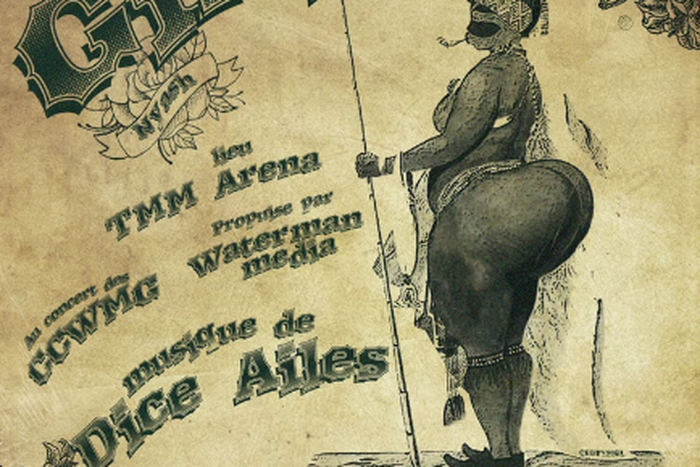 Nyash
lieu
TMM Arena
Propulse par
Waterman
media
Au concert des
CCWMG
musique de
Dice Ailes